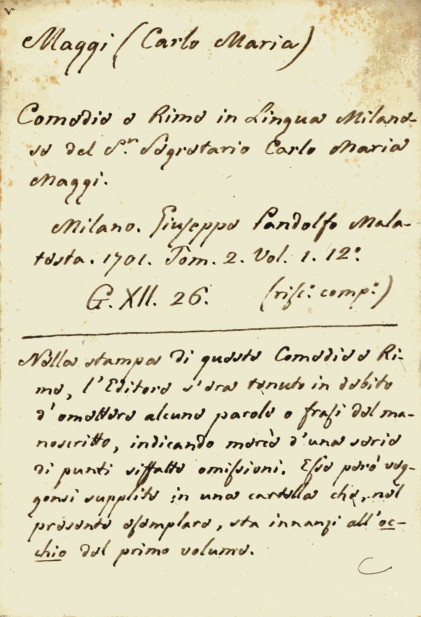 Maggi (Carlo Maria)
Comedie e Rime in Lingua Milane-
se del S.r Segretario Carlo Maria
Maggi.
Milano. Giuseppe Pandolfo Mala-
testa. 1701. Tom. 2. Vol. 1. 12º
G. XII. 26. (risc.º comp.º)
Nella stampa di queste Comedie e Ri-
me, l'Editore s'era tenuto in debito
d'omettere alcune parole o frasi del ma-
noscritto, indicando mercè d'una serie
di punti siffatte omissioni. Esse però veg-
gonsi supplite in una cartella che, nel
presente esemplare, sta innanzi all'oc-
chio del primo volume.